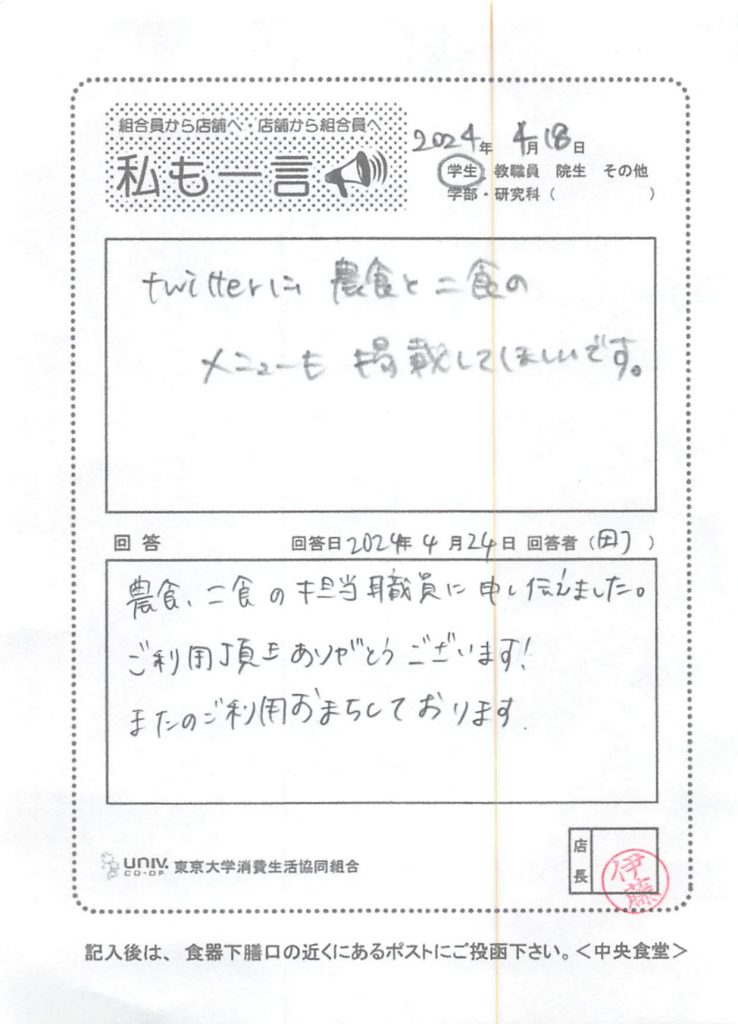 組合員から店舗へ・店舗から組合員へ
私も一言
2024年 4月18日
学生 教職員 院生 その他
学部・研究科（ ）
twitterに 農食と二食の
メニューも 掲載してほしいです。
回答 回答日2024年4月24日 回答者（田）
農食、二食の担当職員に申し伝えました。
ご利用頂きありがとうございます!
またのご利用おまちしております.
UNIV. CO-OP 東京大学消費生活協同組合
店長
伊藤
記入後は、食器下膳口の近くにあるポストにご投函下さい。＜中央食堂＞